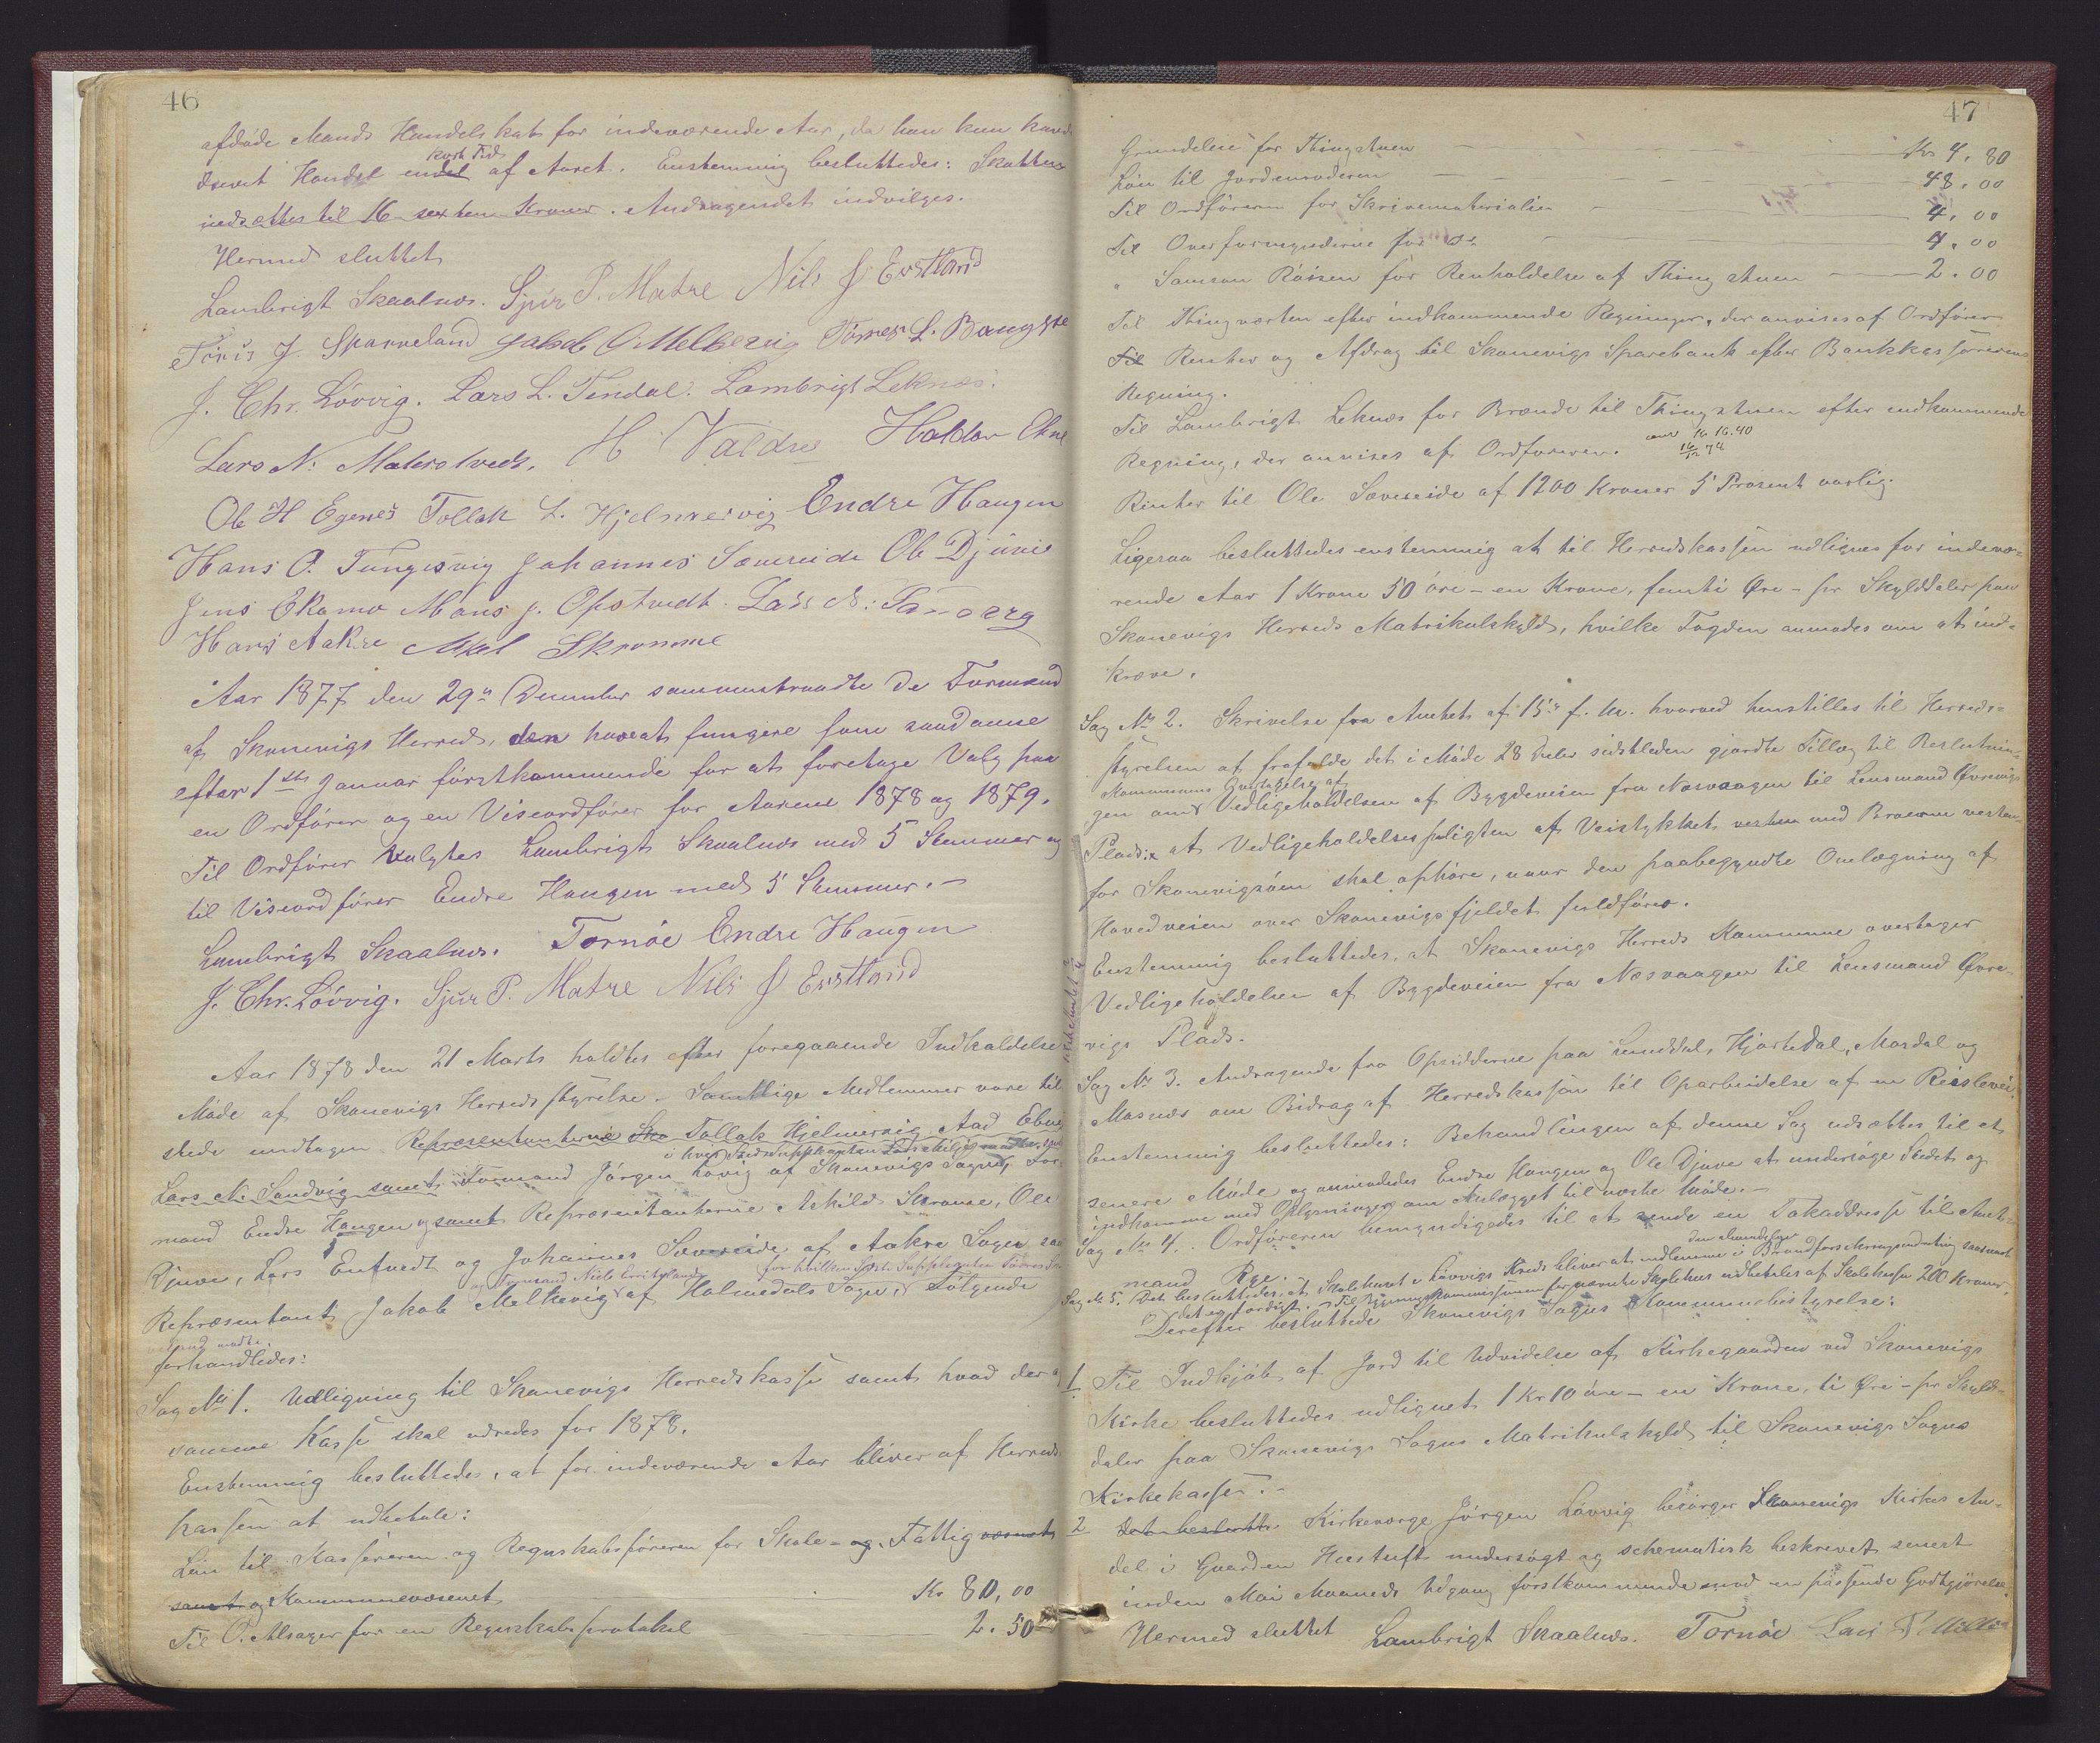 46
afdøde Mands Handelskat for indeværende Aar, da han kun havde
drevet Handel kort Tid af Aaret. Enstemmig besluttedes: Skatten
nedsættes til 16 sexten Kroner. Andragendet indvilges.
Hermed sluttet
Lambrigt Skaalnes. Sjur P. Matre Nils J Erstland
Tøris J. Sparreland Jakob O Melkevig Tørres L.
J. Chr. Løvvig. Lars L. Tendal. Lambrigt Leknæs.
Lars N. H Valdre Haldor
Ole H Egenes Tollak L. Hjelmervig Endre Haugen
Hans O. Tungesvig Johannes Sævereide Ole Djuve
Jens Ekamo Mons J. Opstvedt. Lars N:
Hans Aakre Skromme
Aar 1877 den 29de December sammentraadte de Formænd
af Skonevigs Herred, der have at fungere som saadanne
efter 1ste Januar førstkommende for at foretage Valg paa
en Ordfører og en Viseordfører for Aarene 1878 og 1879.
Til Ordfører valgtes Lambrigt Skaalnes med 5 Stemmer og
til Viseordfører Endre Haugen med 5 Stemmer.–
Lambrigt Skaalnes. Tornøe Endre Haugen
J. Chr. Løvvig. Sjur P. Matre Nils J Erstland
Aar 1878 den 21 Marts holdtes efter foregaaende Indkaldelse
Møde af Skonevigs Herredsstyrelse. Samtlige Medlemmer vare til
stede undtagen Repræsentanterne Tollak Hjelmervig, Aad
Lars N. Sandvig samt Formand Jørgen Løvig af Skonevigs Sogn, For-
mand Endre Haugen og samt Repræsentanterne Askild Skromme, Ole
Djuve, Lars Entvedt og Johannes Sævereide af Aakre Sogn
og Formand Niels Erritsland for hvilken første Suppleanten
Repræsentant Jakob Melkevig af Holmedals Sogn. Følgende
forhandledes:
Sag No 1. Udligning til Skonevigs Herredskasse samt hvad der af
samme Kasse skal udredes for 1878.
Enstemmig besluttedes, at for indeværende Aar bliver af Herreds
kassen at udbetale:
Løn til Kassereren og Regnskabsføreren for Skole- og Fattigvæsenet
samt og Kommunevæsenet Kr 80,00
Til O. Alsager for en Regnskabsprotokol 2.50
47
Grundleie for Thingstuen Kr 4.80
Løn til Jordemoderen 48.00
Til Ordføreren for Skrivematerialier 4.00
Til Overformynderne for do. 4.00
" Samson Røisen for Renholdelse af Thingstuen 2.00
Til Thingverten efter indkommende Regninger, der anvises af Ordfører
Til Renter og Afdrag til Skonevigs Sparebank efter Bankkassererens
Regning.
Til Lambrigt Leknæs for Brænde til Thingstuen efter indkommende
Regning, der anvises af Ordføreren. 16.40
Renter til Ole Sævereide af 1200 Kroner 5 Prosent aarlig.
Ligesaa besluttedes enstemmig at til Herredskassen udlignes for indevæ-
rende Aar 1 Krone 50 øre – en Krone, femti Øre – pr Skylddaler paa
Skonevigs Herreds Matrikulskyld, hvilke Fogden anmodes om at ind-
kræve.
Sag No 2. Skrivelse fra Amtet af 15de f. M. hvorved henstilles til Herreds-
styrelsen at frafalde det i Møde 28 sidstleden gjordte Tillæg til Beslutnin-
Kommunens Overtagelse af
gen om Vedligeholdelsen af Bygdeveien fra Næsvaagen til Lensmand Øvrevigs
Plads: at Vedligeholdelsespligten af Veistykket
for Skonevigsøen skal ophøre, naar den paabegyndte Omlægning af
Hovedveien over Skonevigsfjeldet fuldføres.
Enstemmig besluttedes, at Skonevigs Herreds Kommune overtager
Vedligeholdelsen af Bygdeveien fra Næsvaagen til Lensmand Øvre-
vigs Plads.
Sag No 3. Andragende fra Opsidderne paa Hjortedal, Mardal og
Masnes om Bidrag af Herredskassen til Oparbeidelse af en
Enstemmig besluttedes: Behandlingen af denne Sag udsættes til et
senere Møde og anmodedes Endre Haugen og Ole Djuve at undersøge Stedet og
indkomme med Oplysninger om Anlægget til næste Møde.–
Sag No 4. Ordføreren bemyndigedes til at sende en Takaddresse til Amt-
mand Rye.
Sag No 5. Det besluttedes, at Skolehuset i Løvvigs Kreds bliver at indlemme i den almindelige Brandforsikringsindretning saasnart
det er færdigt. – Til Bygningskommissionen for nævnte Skolehus udbetales af Skolekassen 200 Kroner.
Derefter besluttede Skonevigs Sogns Kommunebestyrelse:
1 Til Indkjøb af Jord til Udvidelse af Kirkegaarden ved Skonevigs
Kirke besluttedes udlignet 1 Kr 10 øre – en Krone, ti Øre – pr Skyld-
daler paa Skonevigs Sogns Matrikulskyld til Skonevigs Sogns
Kirkekasse.–
2 Det beslutt. Kirkeværge Jørgen Løvvig besørger Skonevigs Kirkes An-
del i Gaarden undersøgt og schematisk beskrevet senest
inden Mai Maaneds Udgang førstkommende mod en passende Godtgjørelse.
Hermed sluttet Lambrigt Skaalnes. Tornøe